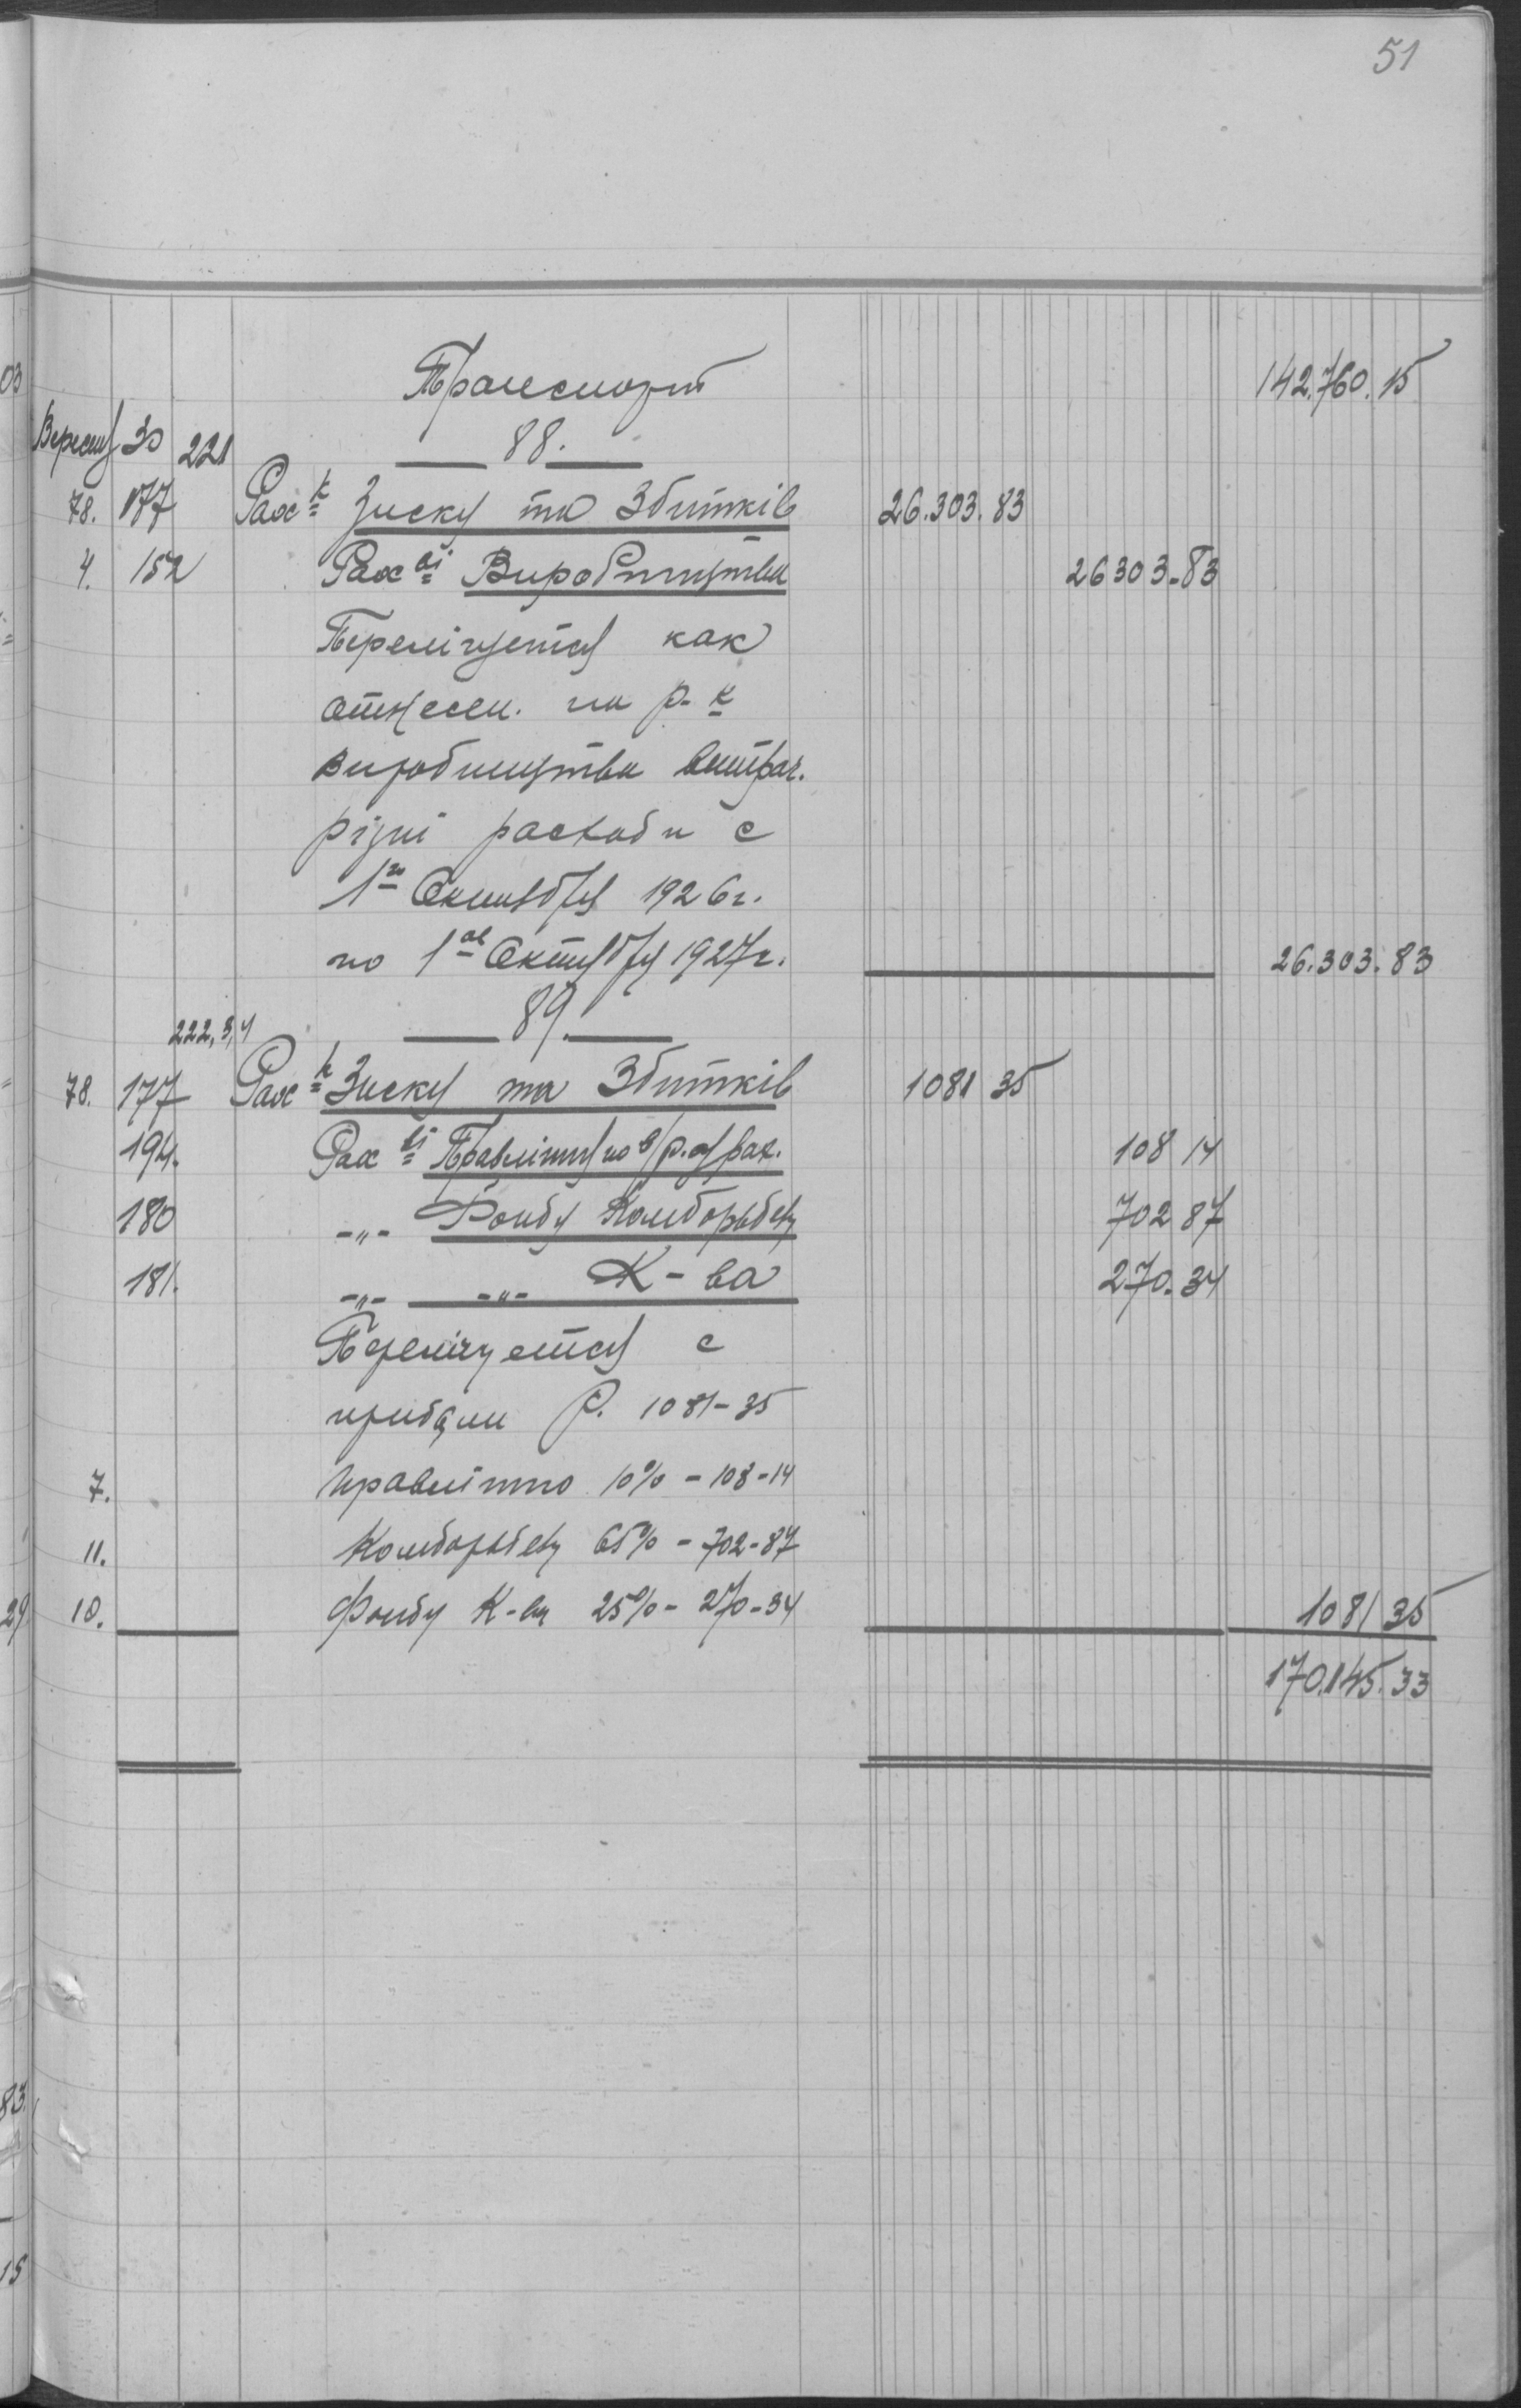 51
Транспорт 142.760.15
Вересня 30 221 88.
78. 177 Рах-к Зиску та Збитків 26.303.83
4. 152 Рах-ві Виробництва 26303-83
Перелічуется как
отнесен. на р-к
виробництва витрач.
різні расходи с
1го Октября 1926г.
по 1ое Октября 1927г. 26.303.83
222,3,4 89.
78. 177 Рах-к Зиску та Збитків 1081 35
194. Рах-ві Правлінню по 108 14
180 -„- Фонду Комборьбезу 702 87
181. -„- -„- К-ва 270.34
Перелічуется с
прибули Р. 1081-35
7. правлінню 10% - 108-14
11. Комборьбезу 65% - 702-87
10. Фонду К-ва 25% - 270-34 1081 35
170.145.33